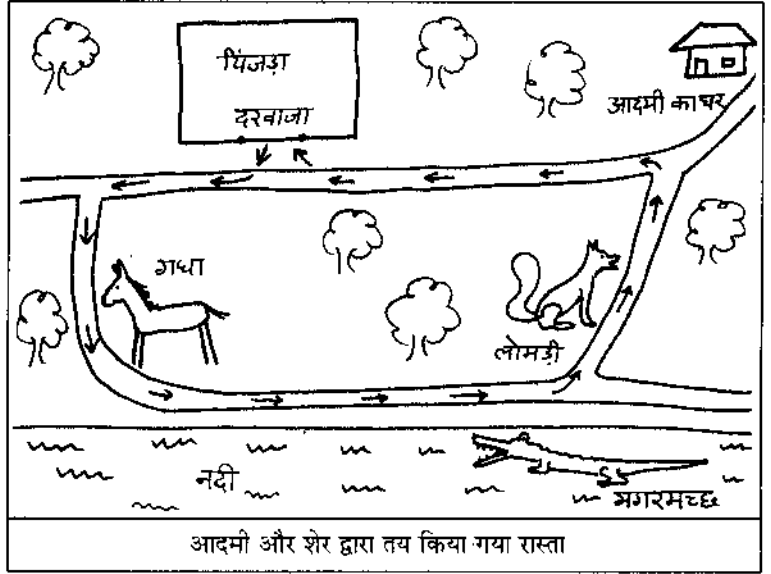 पिंजड़ा
दरवाजा
आदमी का घर
गधा
लोमड़ी
नदी
मगरमच्छ
आदमी और शेर द्वारा तय किया गया रास्ता